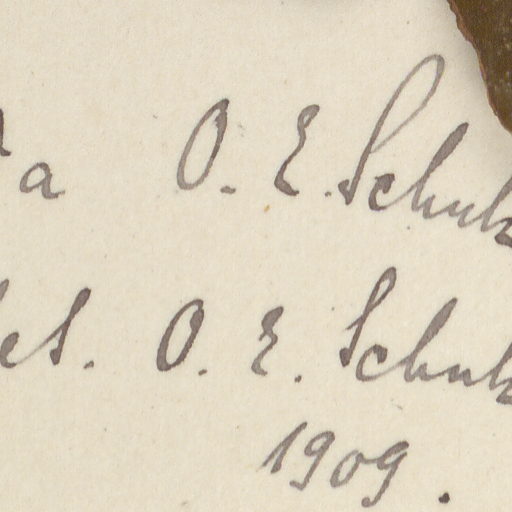 a O. E. Schulz
det. O. E. Schulz
1909.